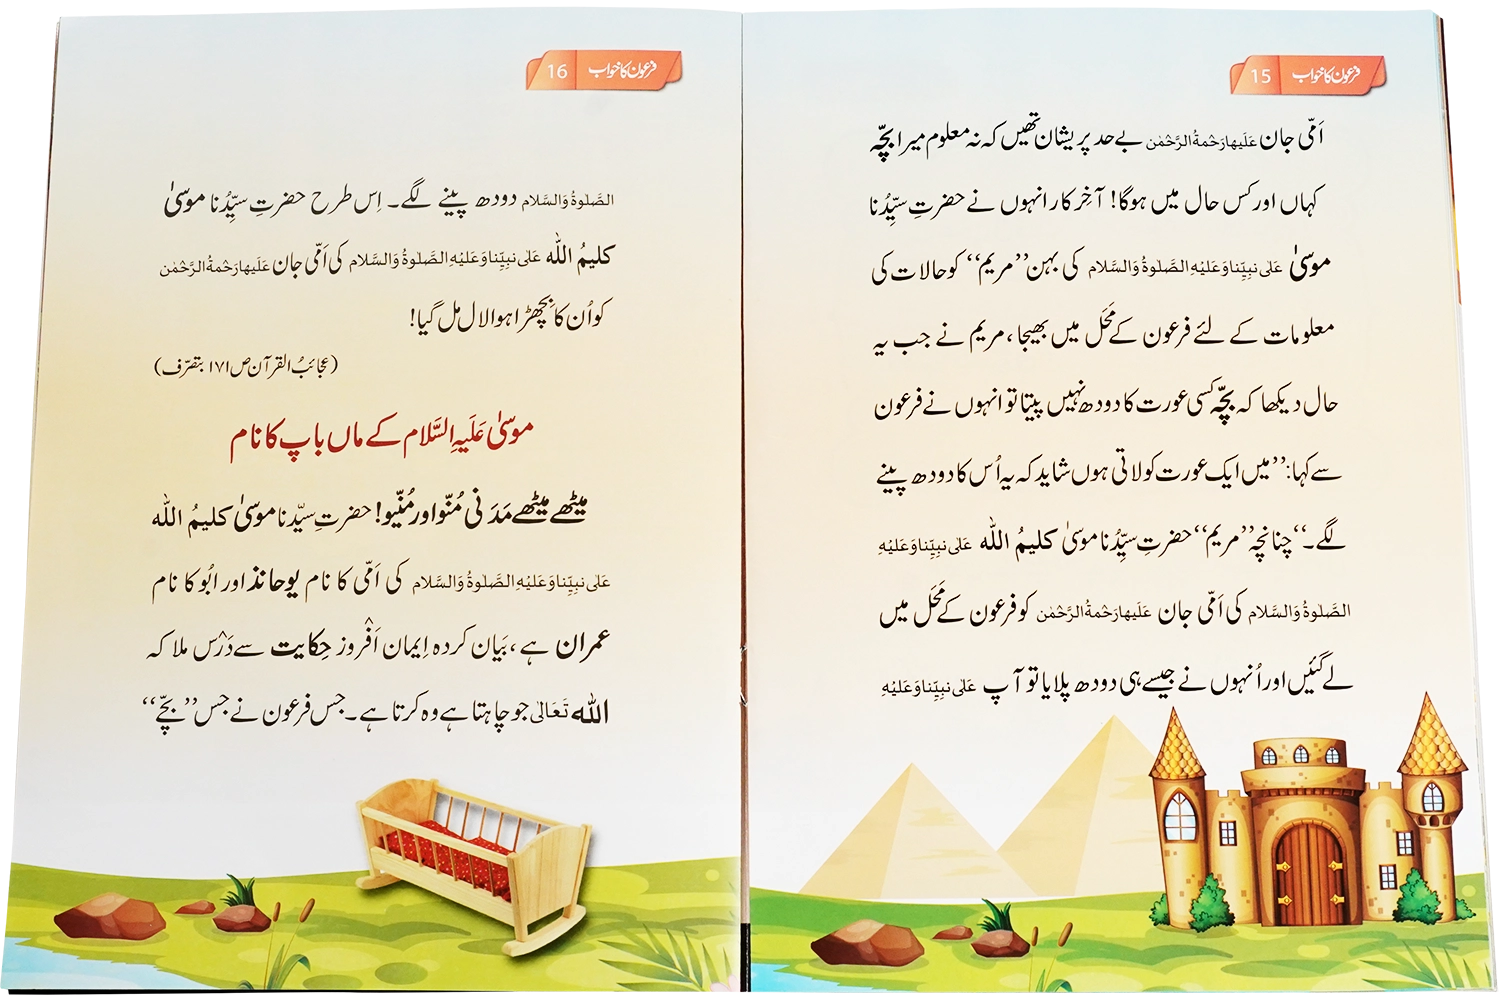 فرعون کا خواب 15
اَمّی جان عَلَیہا رَحْمَۃُ الرَّحْمٰن بے حد پریشان تھیں کہ نہ معلوم میرا بچّہ
کہاں اور کس حال میں ہوگا! آخِرکار انہوں نے حضرتِ سیِّدُنا
موسیٰ عَلٰی نَبِیِّنا وَعَلَیْہِ الصَّلٰوۃُ وَالسَّلام کی بہن ”مریم“ کو حالات کی
معلومات کے لئے فرعون کے مَحَل میں بھیجا، مریم نے جب یہ
حال دیکھا کہ بچّہ کسی عورت کا دودھ نہیں پیتا تو انہوں نے فرعون
سے کہا: ”میں ایک عورت کو لاتی ہوں شاید کہ یہ اُس کا دودھ پینے
لگے۔“ چنانچہ ”مریم“ حضرتِ سیِّدُنا موسیٰ کلیمُ اللہ عَلٰی نَبِیِّنا وَعَلَیْہِ
الصَّلٰوۃُ وَالسَّلام کی اَمّی جان عَلَیہا رَحْمَۃُ الرَّحْمٰن کو فرعون کے مَحَل میں
لے گئیں اور اُنہوں نے جیسے ہی دودھ پلایا تو آپ عَلٰی نَبِیِّنا وَعَلَیْہِ
فرعون کا خواب 16
الصَّلٰوۃُ وَالسَّلام دودھ پینے لگے۔ اِس طرح حضرتِ سیِّدُنا موسیٰ
کلیمُ اللہ عَلٰی نَبِیِّنا وَعَلَیْہِ الصَّلٰوۃُ وَالسَّلام کی اَمّی جان عَلَیہا رَحْمَۃُ الرَّحْمٰن
کو اُن کا بِچھڑا ہوا لال مل گیا!
(عجائبُ القرآن ص ۱۷۱ بتصرّف)
موسیٰ عَلَیہِ السَّلام کے ماں باپ کا نام
میٹھے میٹھے مَدَنی مُنّو اور مُنّیو! حضرتِ سیّدنا موسیٰ کلیمُ اللہ
عَلٰی نَبِیِّنا وَعَلَیْہِ الصَّلٰوۃُ وَالسَّلام کی اَمّی کا نام یوحانذ اور ابُو کا نام
عمران ہے، بَیان کردہ اِیمان اَفْروز حِکایت سے دَرْس ملا کہ
اللہ تَعَالٰی جو چاہتا ہے وہ کرتا ہے۔ جس فرعون نے جس ”بچّے“